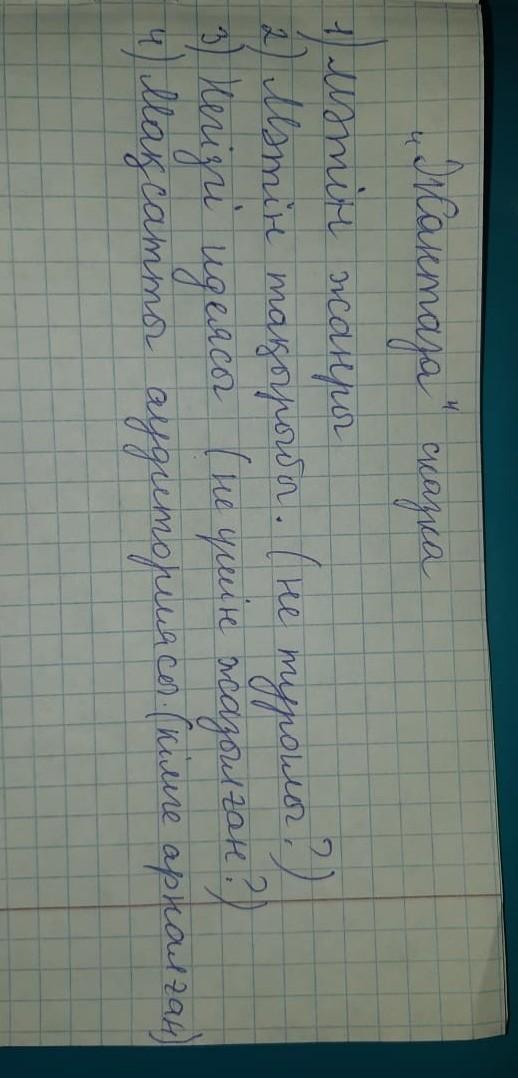 "Жантаза" сказка
1) Мәтін жанры
2) Мәтін тақырыбы. (не туролы?)
3) Негізгі идеясы (не үшін жазылған?)
4) Мақсатты аудиториясы. (кімге арналған)